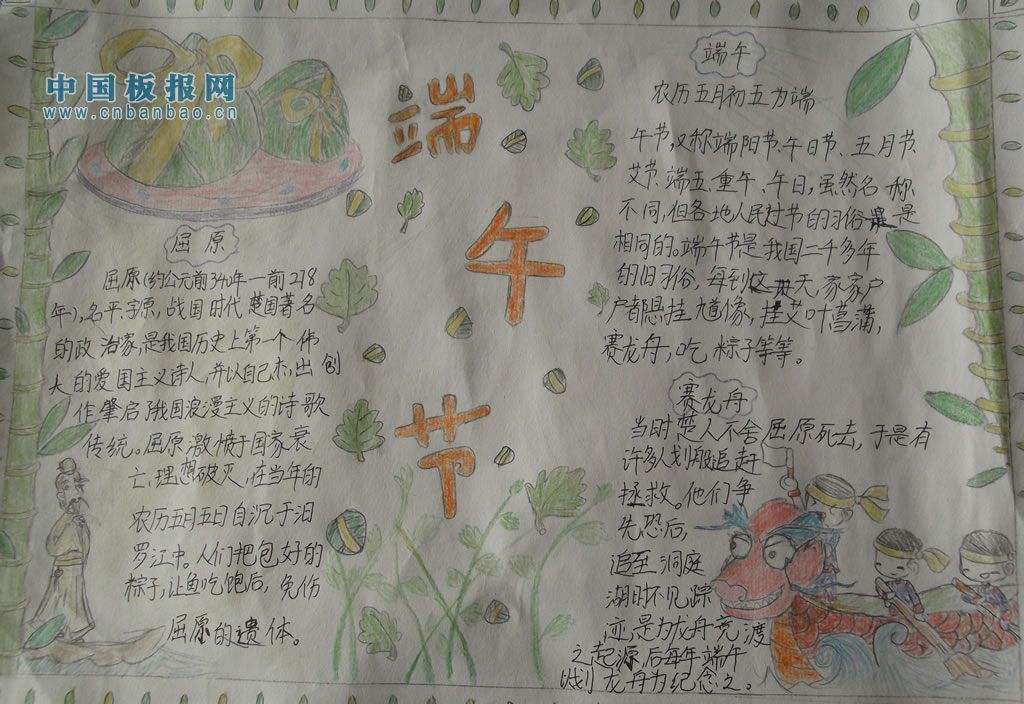 中国板报网
www.cnbanbao.cn
端午节
屈原
屈原(约公元前340年一前278
年),名平,字原,战国时代楚国著名
的政治家,是我国历史上第一个伟
大的爱国主义诗人,并以自己杰出创
作肇启了我国浪漫主义的诗歌
传统。屈原激愤于国家衰
亡,理想破灭,在当年的
农历五月五日自沉于汨
罗江中。人们把包好的
粽子,让鱼吃饱后,免伤
屈原的遗体。
端午
农历五月初五为端
午节,又称端阳节、午日节、五月节、
艾节、端五、重午、午日,虽然名称
不同,但各地人民过节的习俗是
相同的。端午节是我国二千多年
的旧习俗,每到这天,家家户
户都悬挂馗像,挂艾叶菖蒲,
赛龙舟,吃粽子等等。
赛龙舟
当时楚人不舍屈原死去,于是有
许多人划船追赶
拯救。他们争
先恐后,
追至洞庭
湖时不见踪
迹,是为龙舟竞渡
之起源,后每年端午
划龙舟为纪念之。